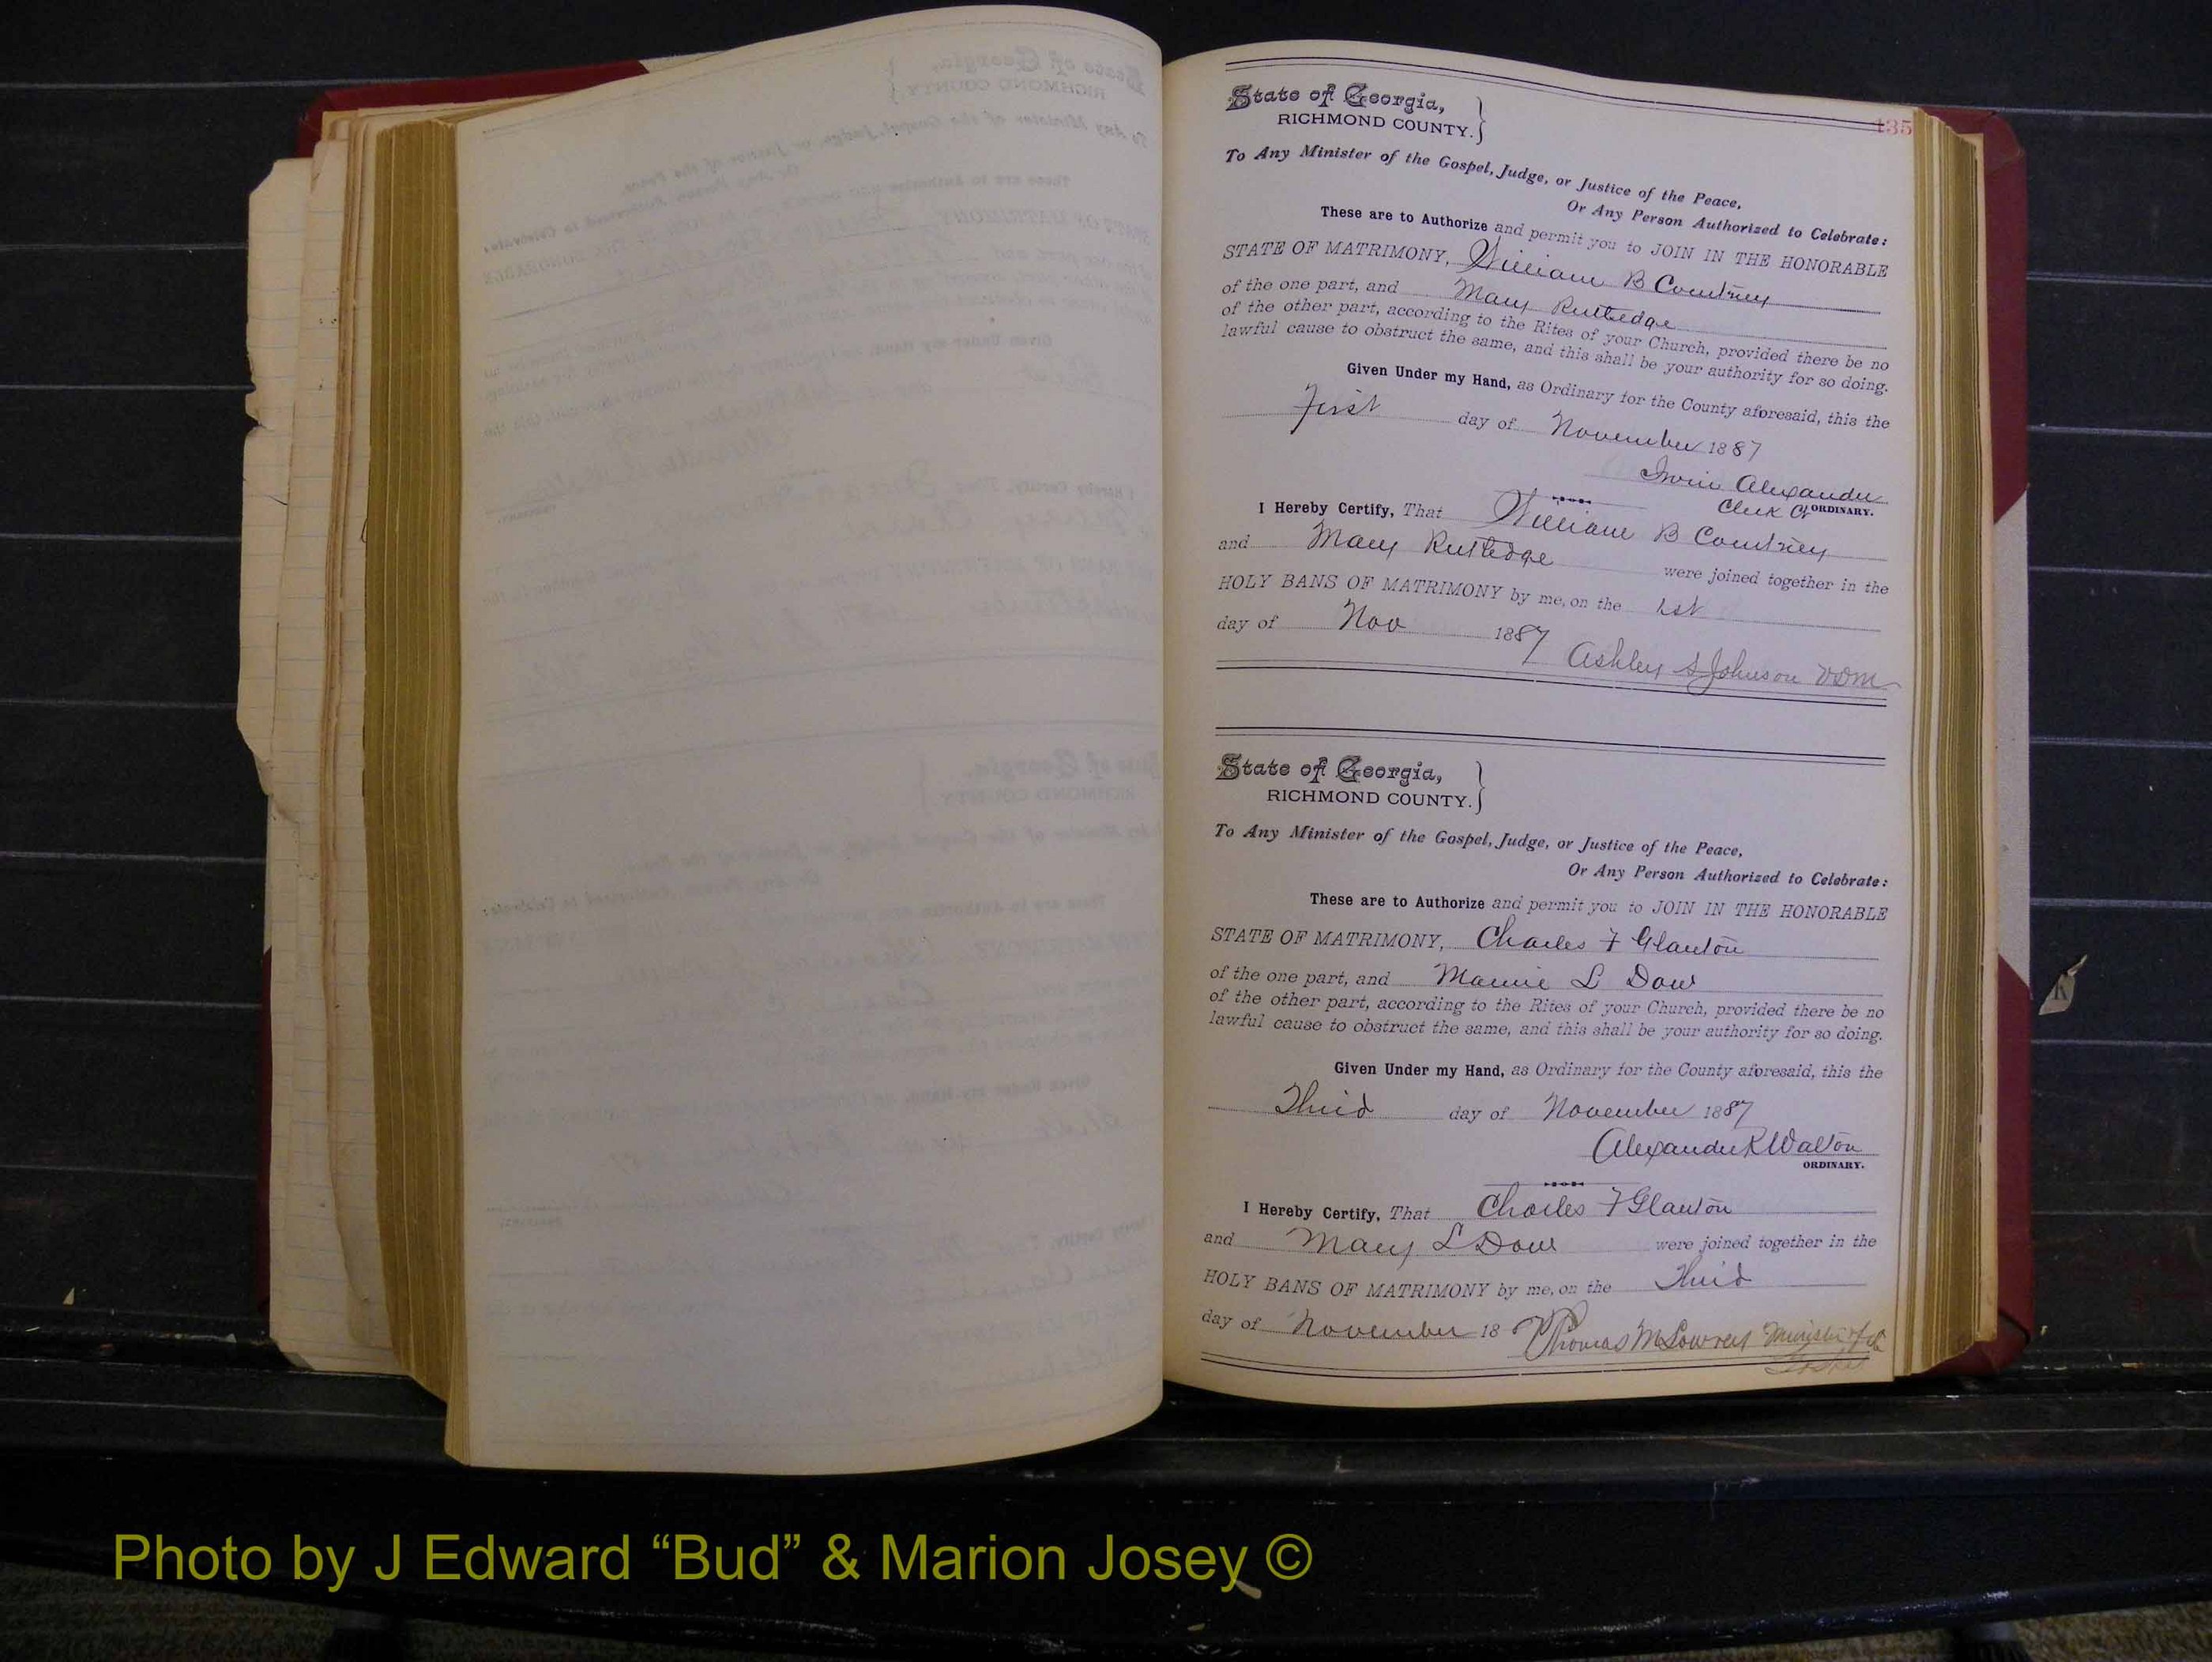 135
State of Georgia,
RICHMOND COUNTY.
To Any Minister of the Gospel, Judge, or Justice of the Peace,
Or Any Person Authorized to Celebrate:
These are to Authorize and permit you to JOIN IN THE HONORABLE
STATE OF MATRIMONY, William B Courtney
of the one part, and Mary Rutledge
of the other part, according to the Rites of your Church, provided there be no
lawful cause to obstruct the same, and this shall be your authority for so doing.
Given Under my Hand, as Ordinary for the County aforesaid, this the
First day of November 1887
Irvin Alexander
Clerk Co ORDINARY.
I Hereby Certify, That William B Courtney
and Mary Rutledge were joined together in the
HOLY BANS OF MATRIMONY by me, on the 1st
day of Nov 1887
Ashley S Johnson VDM
State of Georgia,
RICHMOND COUNTY.
To Any Minister of the Gospel, Judge, or Justice of the Peace,
Or Any Person Authorized to Celebrate:
These are to Authorize and permit you to JOIN IN THE HONORABLE
STATE OF MATRIMONY, Charles F Glanton
of the one part, and Mamie L Dow
of the other part, according to the Rites of your Church, provided there be no
lawful cause to obstruct the same, and this shall be your authority for so doing.
Given Under my Hand, as Ordinary for the County aforesaid, this the
Third day of November 1887
Alexander R Walton
ORDINARY.
I Hereby Certify, That Charles F Glanton
and Mary L Dow were joined together in the
HOLY BANS OF MATRIMONY by me, on the Third
day of November 18
Thomas M Lowrey Minister of the
Gospel
Photo by J Edward “Bud” & Marion Josey ©